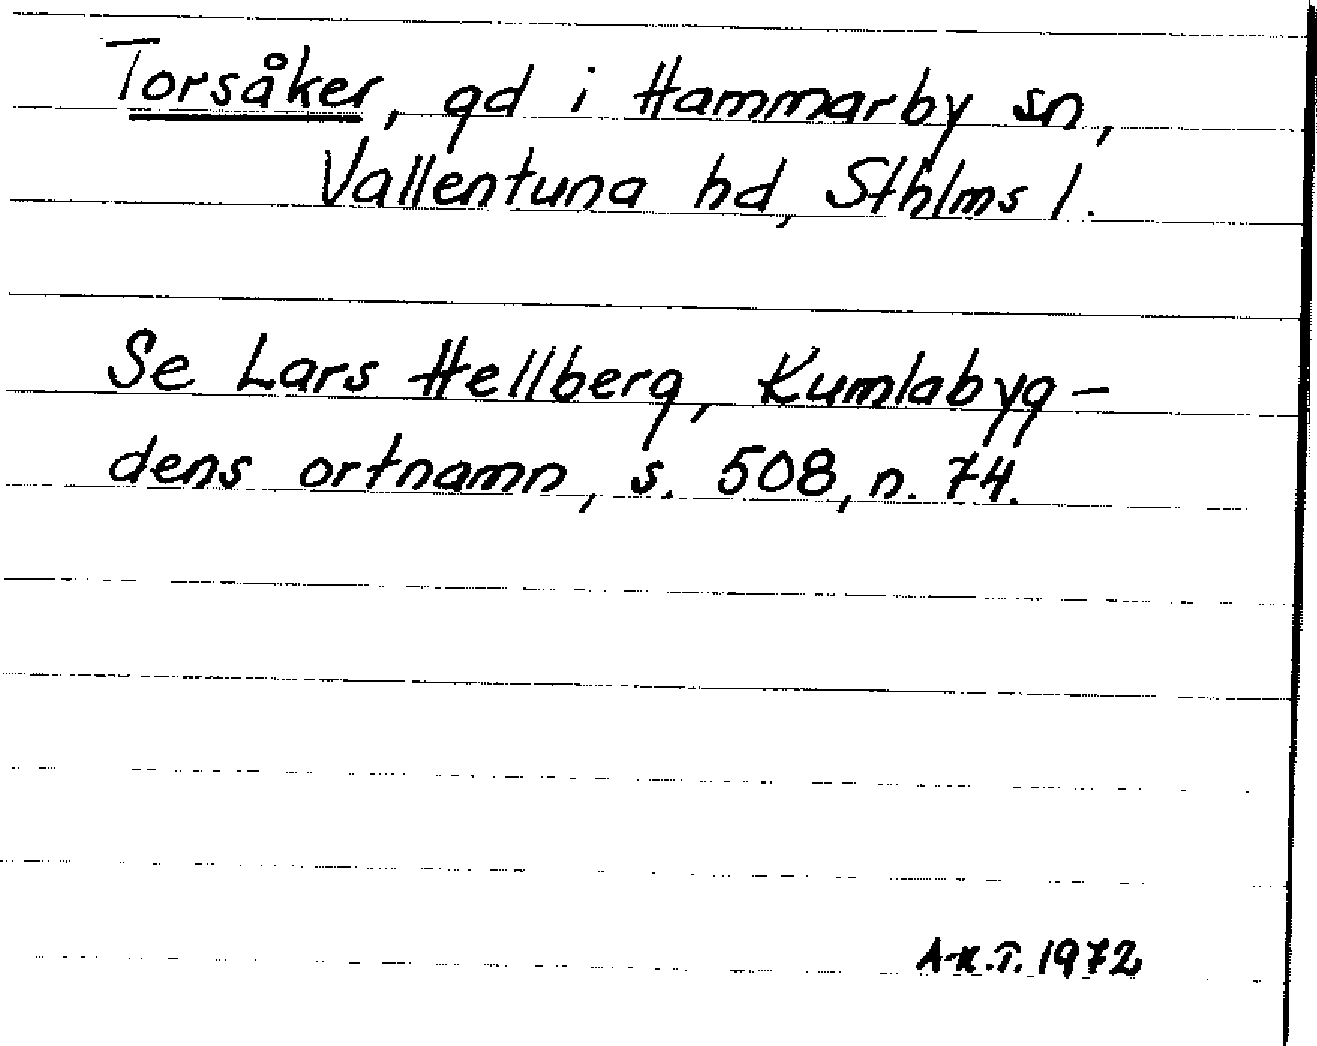 Torsåker, gd i Hammarby sn,
Vallentuna hd, Sthlms l.
Se Lars Hellberg, Kumlabyg-
dens ortnamn, s. 508, n. 74.
A-K.T. 1972